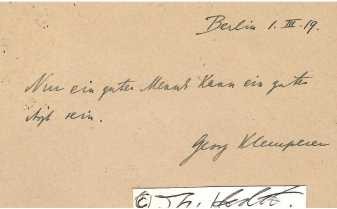 Berlin 1. III. 19.
Nur ein guter Mensch kann ein guter
Arzt sein.
Georg Klemperer
©